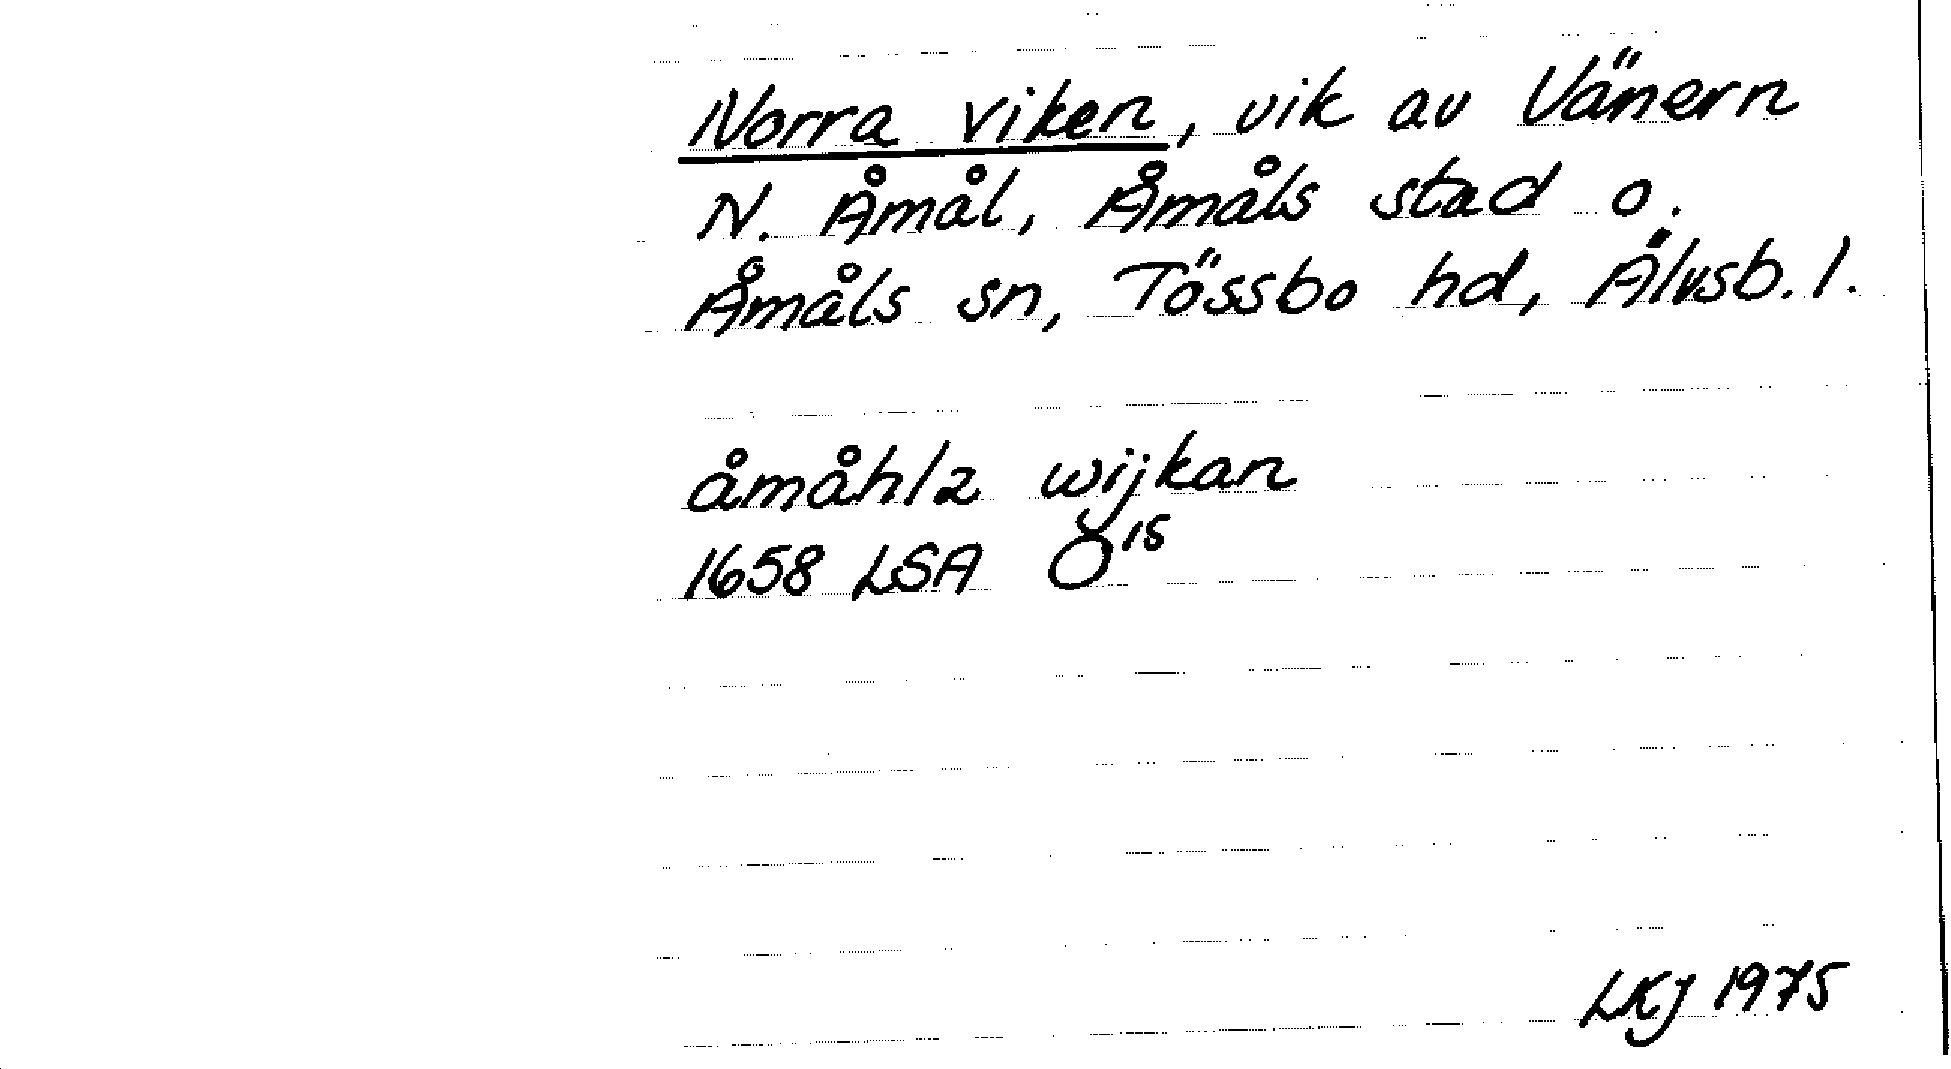 Norra viken, vik av Vänern
N. Åmål, Åmåls stad o.
Åmåls sn, Tössbo hd, Älvsb. l.
åmåhlz wijkan
1658 LSA O¹⁵
LKJ 1975